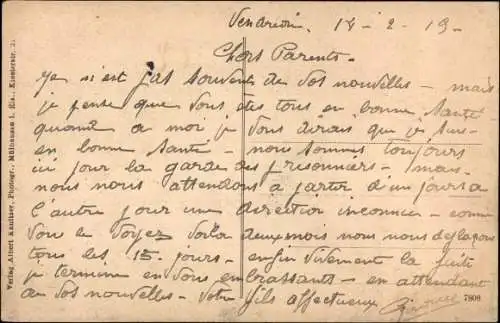 Vendredi, 14 - 2 - 19 -
Chers Parents -
Je n'est pas souvent de vos nouvelles - mais
je pense que vous êtes tous en bonne santé
quand a moi je vous dirais que je suis
en bonne santé - nous sommes toujours
ici pour la garde des prisonniers - mais
nous nous attendons a partir d'un jours a
l'autre pour une direction inconnue - comme
vous le voyez voila deux mois nous nous déplaçons
tous les 15 jours - enfin vivement la fuite
je termine en vous embrassants - en attendant
de vos nouvelles - votre fils affectueux
Verlag Albert Kauffner, Photogr., Mülhausen i. Els.,
7808